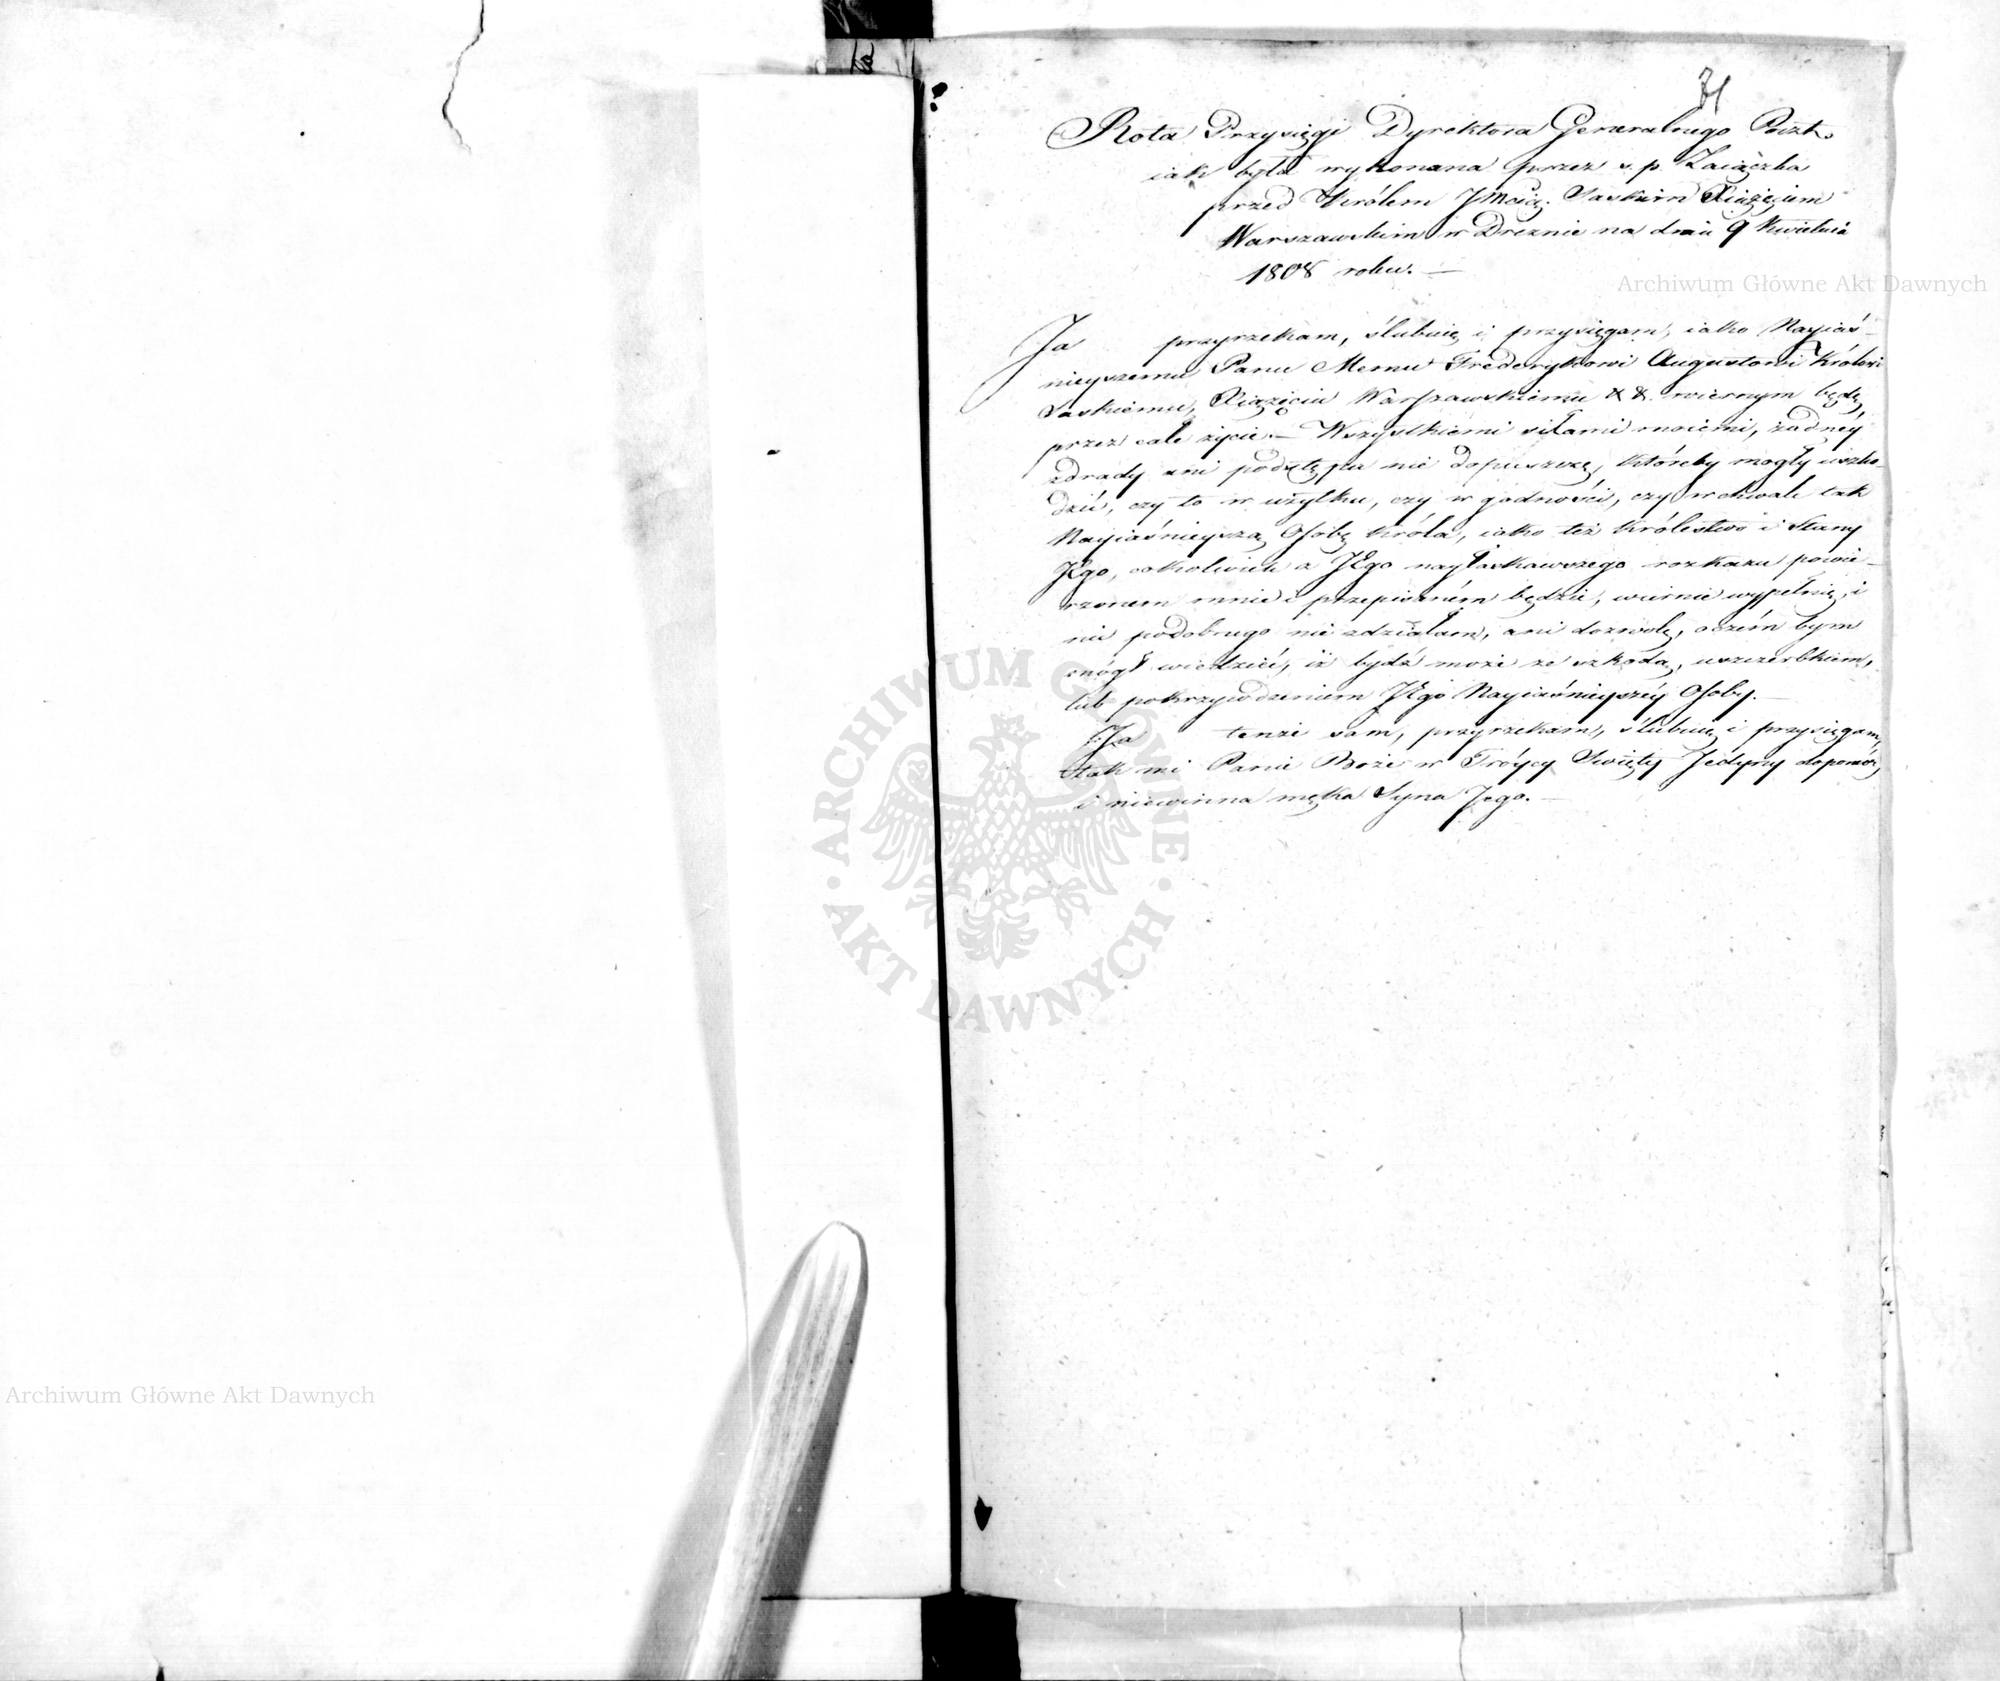 71
Rota Przysięgi Dyrektora Generalnego Poczt.
iak była wykonana przez s. p. Zaiączka
przed Królem JMcią. Saskim Xiążęciem
Warszawskim w Dreznie na dniu 9 Kwietnia
1808 roku. —
Ja przyrzekam, ślubuię i przysięgam, iako Nayiaś-
nieyszemu Panu Memu Frederykowi Augustowi Królowi
Saskiemu, Xiążęciu Warszawskiemu & &. wiernym będę
przez całe życie. — Wszystkiemi siłami moiemi, żadnéy
zdrady ani podstępu nie dopuszczę, któreby mogły uszko-
dzić, czy to w użytku, czy w godności, czy w chwale tak
Nayiaśnieyszą Osobę Króla, iako też Królestwo i Stany
JEgo, cokolwiek z JEgo nayłaskawszego rozkazu powie-
rzonem mnie i przepisaném będzie, wiernie wypełnię, i
nic podobnego nie zdziałam, ani dozwolę, o czém bym
mógł wiedzieć, iż bydź może ze szkodą, uszczerbkiem,
lub pokrzywdzeniem JEgo Nayiaśnieyszéy Osoby. —
Ja tenże sam, przyrzekam, ślubuię i przysięgam,
tak mi Panie Boże w Tróycy Swięty Jedyny dopomóż,
i niewinna męka Syna Jego. —
Archiwum Główne Akt Dawnych
ARCHIWUM GŁÓWNE
· AKT DAWNYCH ·
Archiwum Główne Akt Dawnych